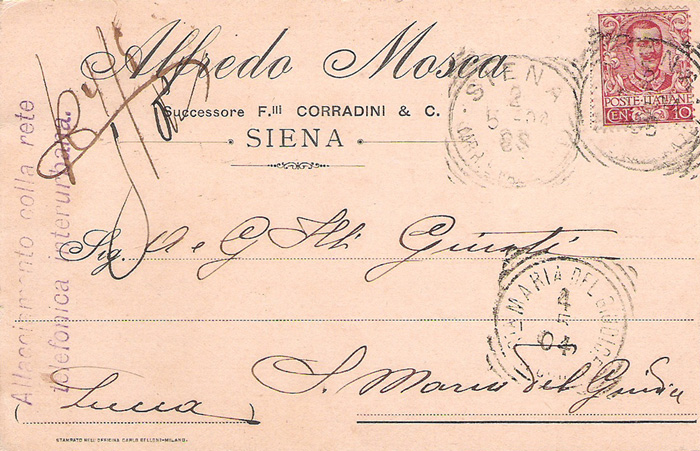 Alfredo Mosca
Successore F.lli CORRADINI & C.
SIENA
POSTE ITALIANE
CEN. 10
SIENA
2
5
Allacciamento colla rete
telefonica interurbana.
Sig. A e G F.lli Giusti
S. MARIA DEL GIUDICE
04
S. Maria del Giudice
(Lucca)
STAMPATO NELL'OFFICINA CARLO BELLONI-MILANO.